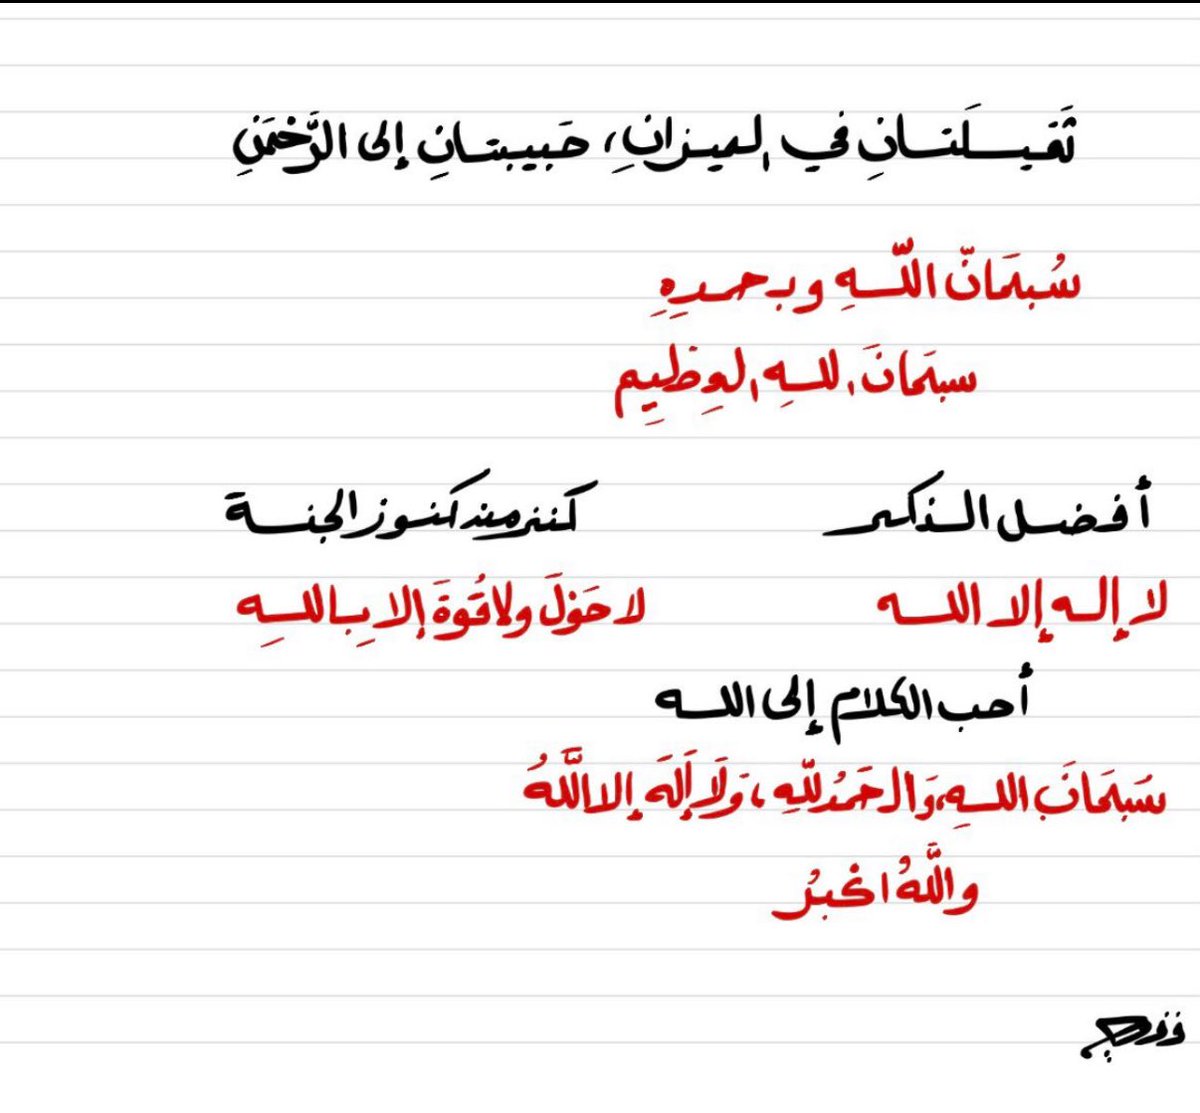 ثَقيلَتانِ في الميزانِ، حَبيبتانِ إلى الرَّحْمَنِ
سُبحَانَ اللَّهِ وبحمدِهِ
سبحَانَ اللهِ العِظِيِم
أفضل الذكر
كنز من كنوز الجنة
لا إله إلا الله
لا حَوْلَ ولا قُوةَ إلا بِاللهِ
أحب الكلام إلى الله
سُبحَانَ اللهِ، وَالحَمْدُ للَّهِ، وَلَا إِلَهَ إلا اللَّهُ
واللَّهُ اكبرُ